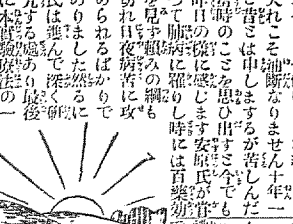 夫れこそ油断なりません十年一
と昔とは申しまするが苦しんだ
當時のことを思ひ出すと今でも
昨日の様に感じます安原氏が嘗
つて肺病に罹りし時には百藥効
を見ず頼みの綱も
切れ日夜病苦に攻
められるばかりで
ありました然るに
氏は進んで深く研
究する處あり最後
に本實驗療法の一